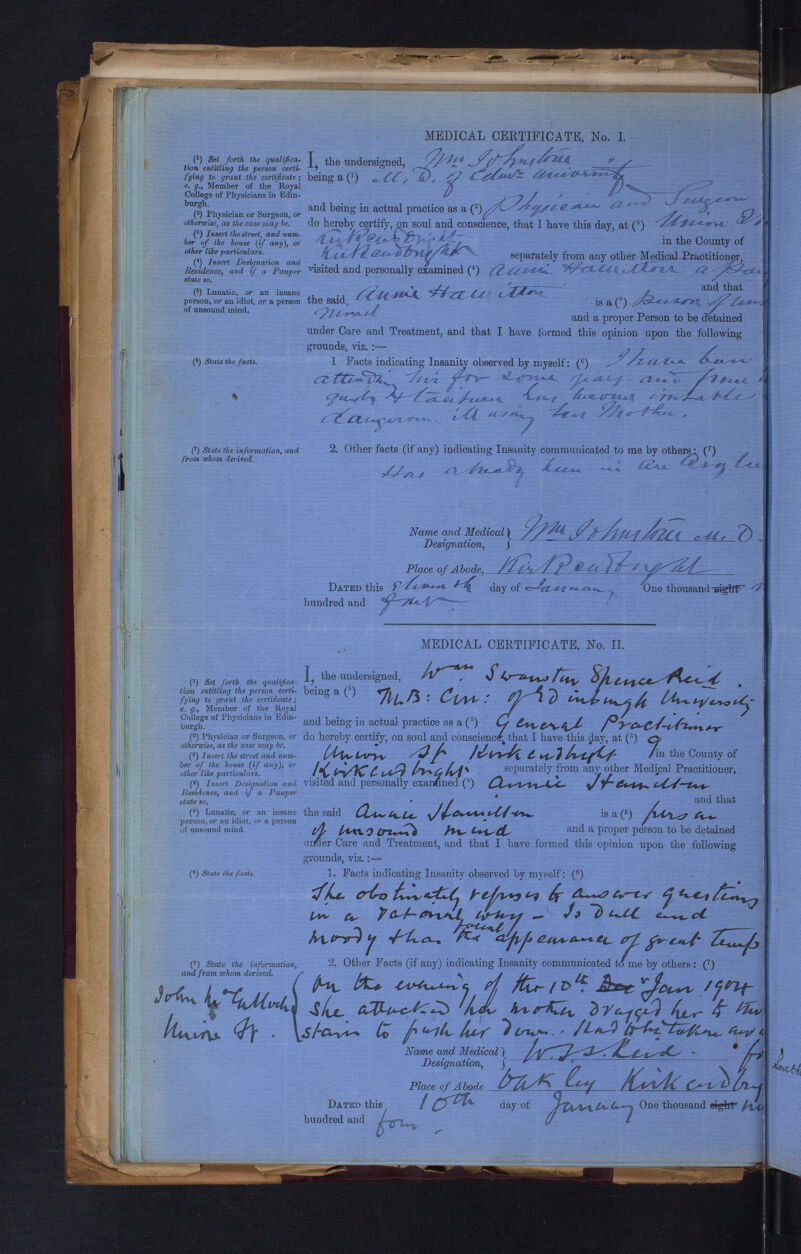 MEDICAL CERTIFICATE, No. I.
(¹) Set forth the qualifica-
tion entitling the person certi-
fying to grant the certificate;
e. g., Member of the Royal
College of Physicians in Edin-
burgh.
(²) Physician or Surgeon, or
otherwise, as the case may be.
(³) Insert the street, and num-
ber of the house (if any), or
other like particulars.
(⁴) Insert Designation and
Residence, and if a Pauper
state so.
(⁵) Lunatic, or an insane
person, or an idiot, or a person
of unsound mind.
I, the undersigned, Wm Johnstone
being a (¹) M. D. of Edinr University
and being in actual practice as a (²) Physician and Surgeon
do hereby certify, on soul and conscience, that I have this day, at (³) Union
Kirkcudbright in the County of
Kirkcudbright separately from any other Medical Practitioner,
visited and personally examined (⁴) Annie Hamilton a
and that
the said Annie Hamilton is a (⁵) Person of
mind and a proper Person to be detained
under Care and Treatment, and that I have formed this opinion upon the following
grounds, viz. :—
(⁶) State the facts.
1 Facts indicating Insanity observed by myself: (⁶) I have been
attending her for some years and from
quiet & taciturn has become irritable
dangerous ill using her Mother.
(⁷) State the information, and
from whom derived.
2. Other facts (if any) indicating Insanity communicated to me by others: (⁷)
Has already been in an
Name and Medical Designation, Wm Johnstone M. D.
Place of Abode, Kirkcudbright
DATED this Eleventh day of January One thousand eight
hundred and four
MEDICAL CERTIFICATE, No. II.
(¹) Set forth the qualifica-
tion entitling the person certi-
fying to grant the certificate;
e. g., Member of the Royal
College of Physicians in Edin-
burgh.
(²) Physician or Surgeon, or
otherwise, as the case may be.
(³) Insert the street and num-
ber of the house (if any), or
other like particulars.
(⁴) Insert Designation and
Residence, and if a Pauper
state so.
(⁵) Lunatic, or an insane
person, or an idiot, or a person
of unsound mind.
I, the undersigned, Wm Swanston Spence Reid
being a (¹) M.B: Cm: of Edinburgh University
and being in actual practice as a (²) General Practitioner
do hereby certify, on soul and conscience, that I have this day, at (³) 9
Union St Kirkcudbright in the County of
Kirkcudbright separately from any other Medical Practitioner,
visited and personally examined (⁴) Annie Hamilton
and that
the said Annie Hamilton is a (⁵) person
of unsound mind and a proper person to be detained
under Care and Treatment, and that I have formed this opinion upon the following
grounds, viz. :—
(⁶) State the facts.
1. Facts indicating Insanity observed by myself: (⁶)
She obstinately refuses to answer questions
in a rational way – Is dull and
moody & has the facial appearance of great
(⁷) State the information,
and from whom derived.
2. Other Facts (if any) indicating Insanity communicated to me by others: (⁷)
John McCulloch
Union St.
On the evening of the 10th Dec Jan 1904
she attacked her mother dragged her to the
stairs to push her down. Had to be taken
Name and Medical Designation, W.S.S. Reid.
Place of Abode Oakley
DATED this 10th day of January One thousand eight
hundred and four.